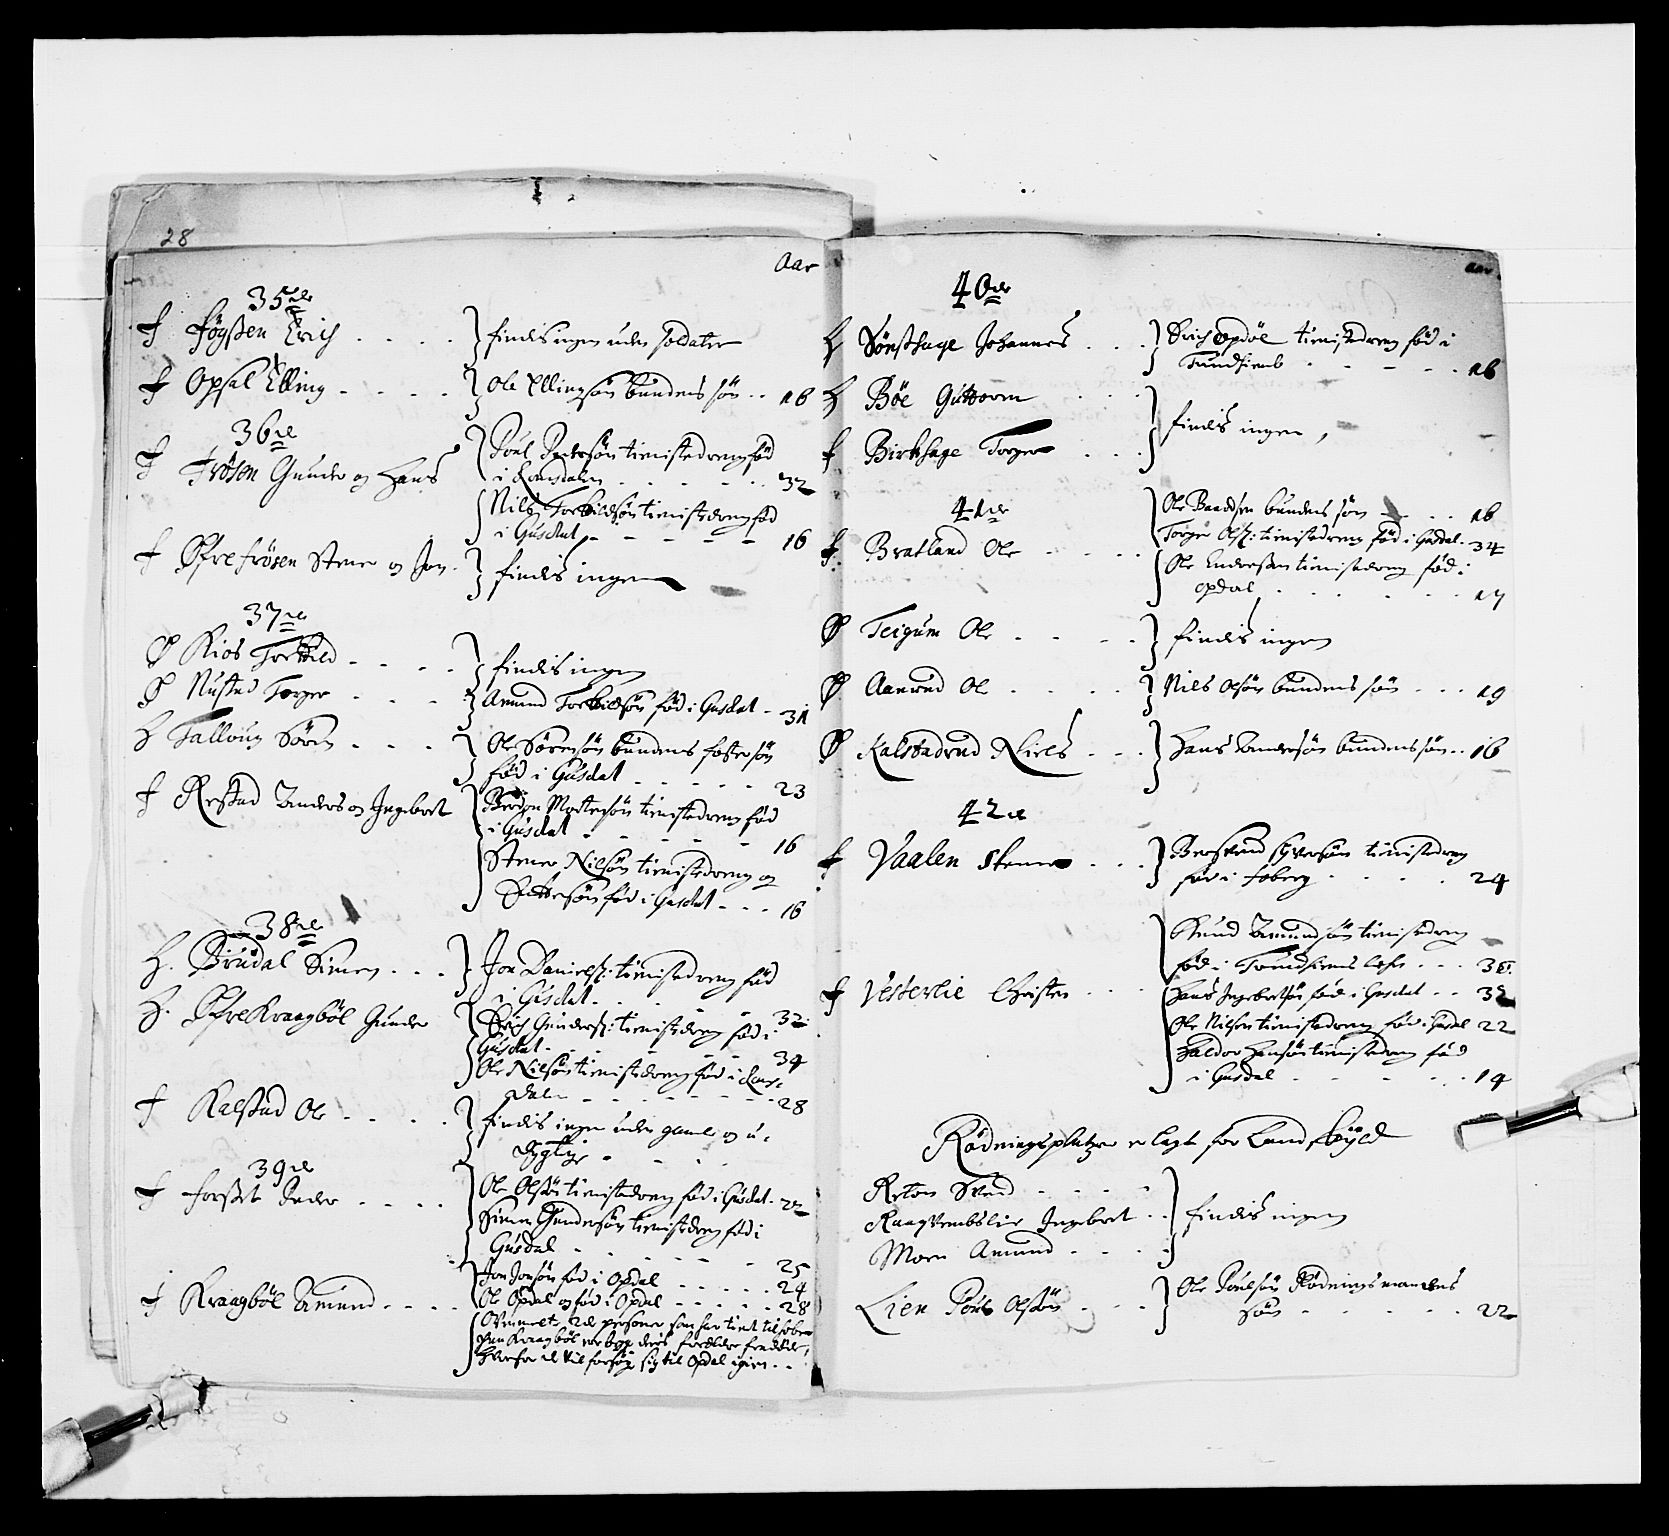 28
Aar
35de
f Erich . . . . findis ingen uden soldater
f Opsal Elling - - - - Ole Ellingsøn bundens søn . . 16
36de
f Frøsen Gunder og Hans
Poul Pedersøn tienistedreng fød
i Romsdalen . . . . . 32
Nils Torkildsøn tienistedreng fød
i Gusdal - - - - - 16
f Øfre frøsen Stener og Jon . findis ingen
37de
Ø Kios Torkild - - - - findis ingen
Ø Nustad Torger - - - - Amund Torkildsøn fød i Gusdal - 31
H Talloug Søren - - - - Ole Sørensøn bundens foster søn
fød i Gusdal - - - - - 23
f Restad Anders og Ingebret
Mortensøn tienistedreng fød
i Gusdal - - - - 16
Stener Nilsøn tienistedreng og
fød i Gusdal - - - 16
38de
H. Brudal Simen . . . Jon Danielss: tienistedreng fød
i Gusdal . . . . 32
H. Øfre Kraagbøl Gunder Erich Gunderss: tienistedreng fød i
Gusdal - - - - 34
Ole Nilsøn tienistedreng fød i Roms-
dalen - - - - - - 28
f Kalstad Ole - - - - findis ingen uden gamle og u-
dygtige
39de
f Forsset Peder - - - - Ole Olsøn tienistedreng fød i Gusdal . 22
Simen Gundersøn tienistedreng fød i
Gusdal - - - - - 25
f Kraagbøl Amund - - - - Jon Jonsøn fød i Opdal - - - - 24
Ole Opdal og fød i Opdal - - - - 28
Ovenmelte 2de persohner som har tient til
Kraagbøl deris forældre
vil forføye sig til Opdal igien - -
Aar
40de
H Sønsthage Johannes . . . Erich Opdøl tienistedreng fød i
Trundhiemb . . . . . 16
H Bøe Guttorm . . .
f Birkhage Torger . . . findis ingen
41de
f Bratland Ole - - - -
Ole Baardsen bundens søn - . . 16
Torger Olss: tienistedreng fød i Gusdal . 34
Ole Endersøn tienistedreng fød i
Opdal . . . . . 17
Ø Teigum Ole . . . . findis ingen
Ø Aanrud Ol . . . . Nils Olsøn bundens søn . . . 19
Ø Kalstadrud Niels . . . Hans Andersøn bundens søn . . 16
42de
f Vaalen Stener . . . tienistedreng
fød i Foberg . . . . 24
f Vesterlie Christen . . .
Knud Amundsøn tienistedreng
fød i Trundhiems lehn . . . 30
Hans Ingebretsøn fød i Gusdal . . 32
Ole Nilsen tienistedreng fød i Gusdal 22
Haldor Hansøn tienistedreng fød
i Gusdal . . . . . . 14
Rødningsplatzer er lagt for Landskyld
Reton Svend - - - -
Kraagvembslie Ingebret . . findis ingen
Moen Amund . . . .
Lien Poul Olsøn . . . Ole Poulsøn Rødningsmandens
søn - - - - - - 22